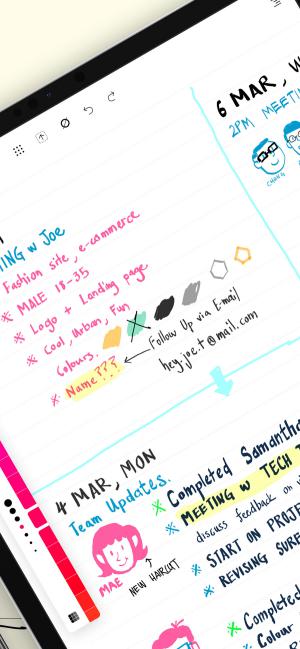 6 MAR, W
2PM MEETIN
CHANG
ING w Joe
Fashion site, e-commerce
※ MALE 18-35
※ Logo + Landing page
※ Cool, Urban, Fun
Colours.
※ Name???
Follow Up via E-mail
hey.joe.t@mail.com
4 MAR, MON
Team Updates.
MAE
NEW HAIRCUT
※ Completed Samantha
※ MEETING w TECH T
discuss feedback on
※ START ON PROJE
※ REVISING SURE
※ Completed
※ Colour